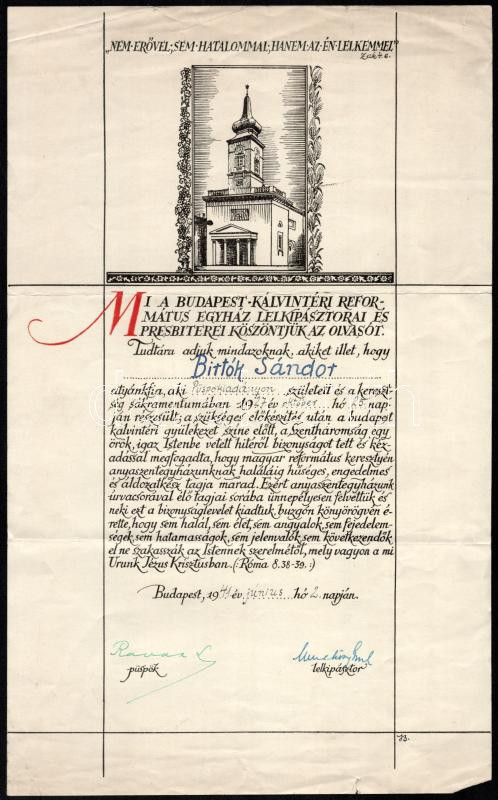 „NEM·ERŐVEL; SEM·HATALOMMAL; HANEM·AZ·ÉN·LELKEMMEL”
Zak 4. 6.
MI A BUDAPEST-KÁLVINTÉRI REFOR-
MÁTUS EGYHÁZ LELKIPÁSZTORAI ÉS
PRESBITEREI KÖSZÖNTJÜK AZ OLVASÓT.
Tudtára adjuk mindazoknak, akiket illet, hogy
Birtók Sándor
atyánkfia, aki Püspökladányon született és a kereszt-
ség sákramentumában 19 év október hó nap-
ján részesült, a szükséges előkészítés után a budapest
kálvintéri gyülekezet színe előtt, a Szentháromság egy
örök, igaz Istenbe vetett hitéről bizonyságot tett és kéz-
adással megfogadta, hogy magyar református keresztyén
anyaszentegyházunknak haláláig hűséges, engedelmes
és áldozatkész tagja marad. Ezért anyaszentegyházunk
úrvacsorával élő tagjai sorába ünnepélyesen felvettük és
neki ezt a bizonyságlevelet kiadtuk buzgón könyörögvén é-
rette, hogy sem halál, sem élet, sem angyalok, sem fejedelem-
ségek, sem hatalmasságok, sem jelenvalók, sem következendők
el ne szakasszák az Istennek szerelmétől, mely vagyon a mi
Urunk Jézus Krisztusban. (: Róma 8. 38-39. :)
Budapest, 1941 év június hó 2. napján.
Ravasz L
püspök
lelkipásztor